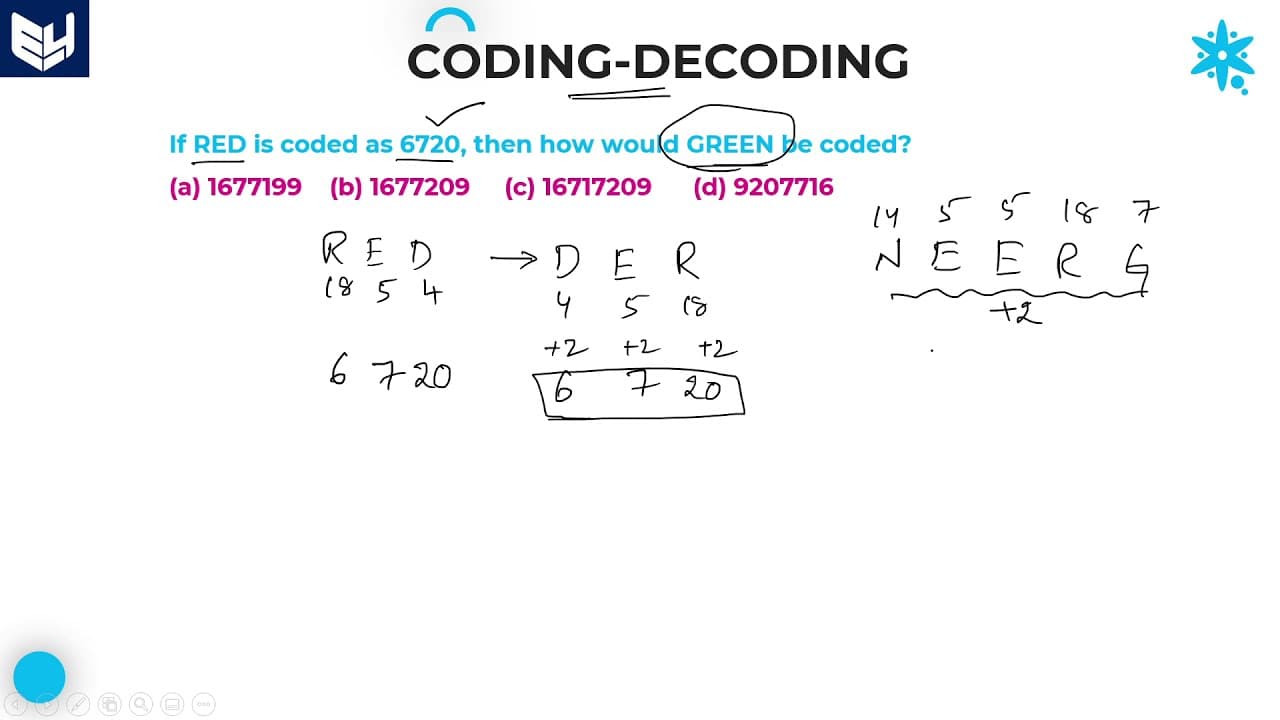 EH
CODING-DECODING
If RED is coded as 6720, then how would GREEN be coded?
(a) 1677199 (b) 1677209 (c) 16717209 (d) 9207716
14 5 5 18 7
R E D → D E R N E E R G
18 5 4 4 5 18 +2
+2 +2 +2
6 7 20 6 7 20